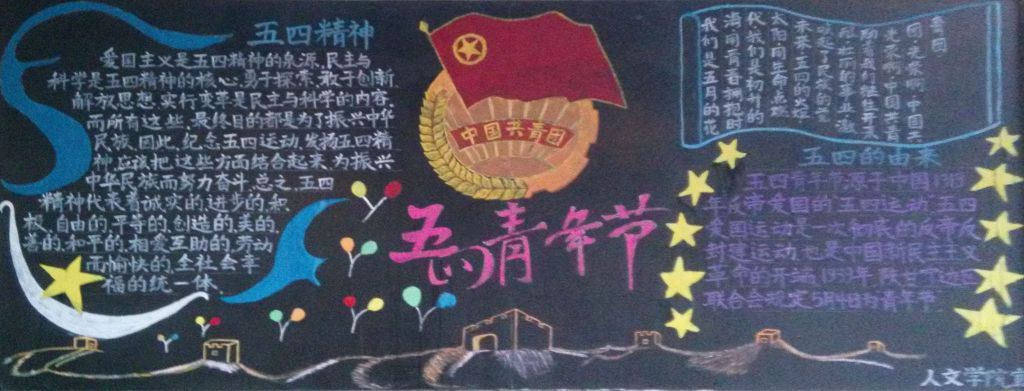 五四精神
爱国主义是五四精神的泉源,民主与
科学是五四精神的核心,勇于探索、敢于创新、
解放思想、实行变革是民主与科学的内容.
而所有这些,最终目的都是为了振兴中华
民族.因此,纪念五四运动,发扬五四精
神,应该把这些方面结合起来,为振兴
中华民族而努力奋斗.总之,五四
精神代表着诚实的、进步的、积
极、自由的、平等的、创造的、美的、
善的、和平的、相爱互助的、劳动
而愉快的,全社会幸
福的统一体.
中国共青团
五四青年节
我们是五月的花
海用青春拥抱时
代我们是初升的
太阳用生命点燃
未来五四的火炬
唤起了民族的
五四的由来
五四青年节源于中国1919
年反帝爱国的五四运动,五四
爱国运动是一次彻底的反帝反
封建运动,也是中国新民主主义
革命的开端.1939年陕甘宁边区
联合会规定5月4日为青年节
人文学院